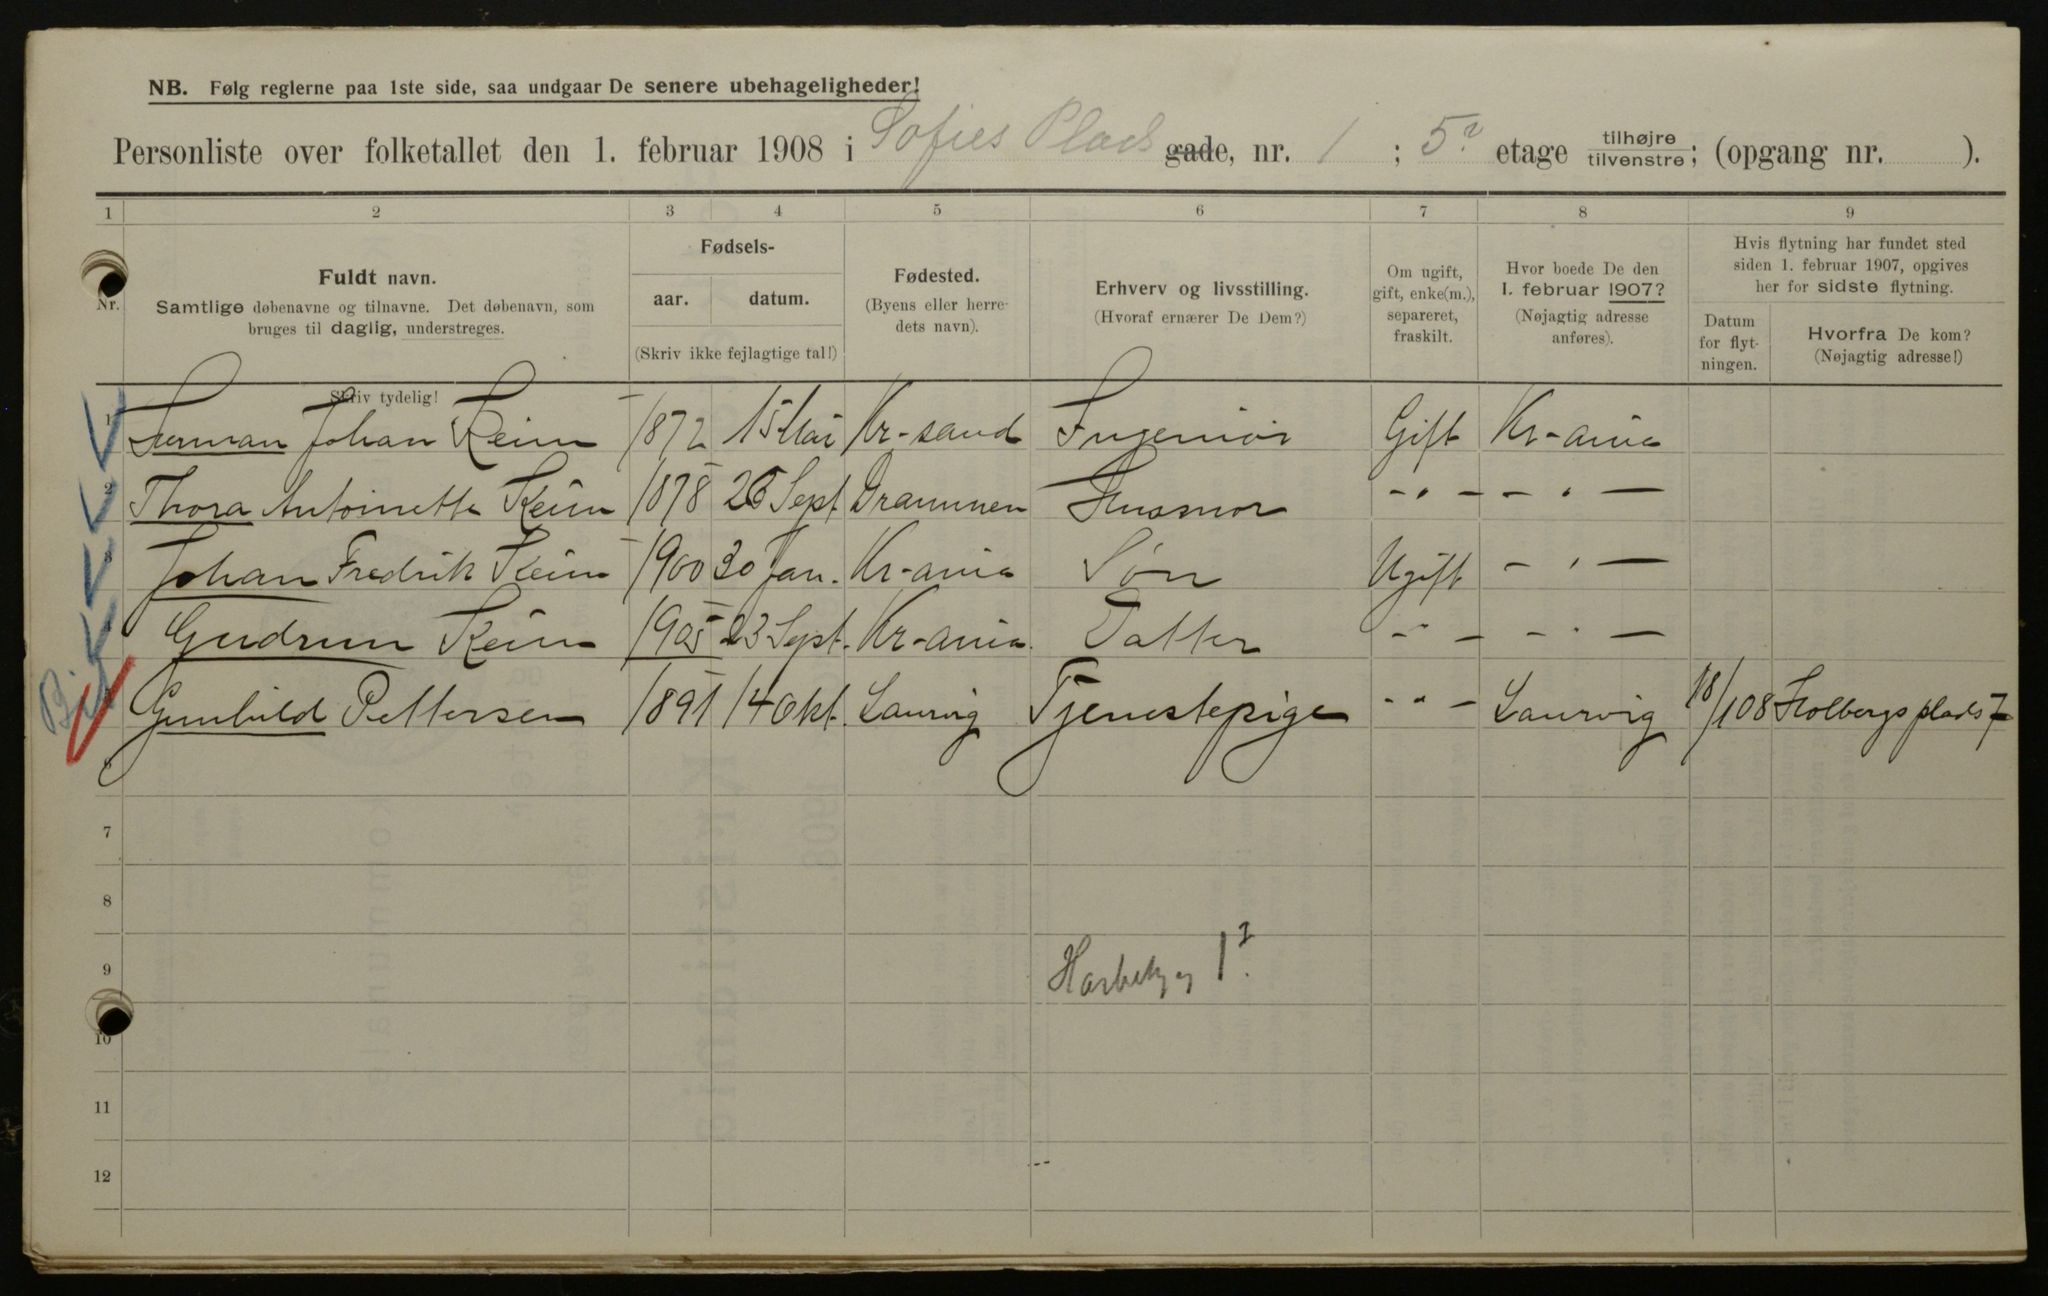 NB. Følg reglerne paa 1ste side, saa undgaar De senere ubehageligheder!
Personliste over folketallet den 1. februar 1908 i Sofies Plads gade, nr. 1 ; 5? etage tilhøjre/tilvenstre; (opgang nr. ).
1 2 3 4 5 6 7 8 9
Nr.
Fuldt navn.
Samtlige døbenavne og tilnavne. Det døbenavn, som
bruges til daglig, understreges.
Skriv tydelig!
Fødsels-
aar. datum.
(Skriv ikke fejlagtige tal!)
Fødested.
(Byens eller herre-
dets navn).
Erhverv og livsstilling.
(Hvoraf ernærer De Dem?)
Om ugift,
gift, enke(m.),
separeret,
fraskilt.
Hvor boede De den
1. februar 1907?
(Nøjagtig adresse
anføres).
Hvis flytning har fundet sted
siden 1. februar 1907, opgives
her for sidste flytning.
Datum
for flyt-
ningen.
Hvorfra De kom?
(Nøjagtig adresse!)
1 Herman Johan Keim 1872 15 Mai Kr-sand Ingeniør Gift Kr-ania
2 Thora Antoinette Keim 1878 26 Sept Drammen Husmor -"- -"-
3 Johan Fredrik Keim 1900 30 Jan. Kr-ania Søn Ugift -"-
4 Gudrun Keim 1905 23 Sept. Kr-ania. Datter -"- -"-
5 Gunhild Pettersen 1891 14 Okt. Laurvig Tjenestepige -"- Laurvig 18/1 08 Holbergs plads 7
6
7
8
9
1
10
11
12